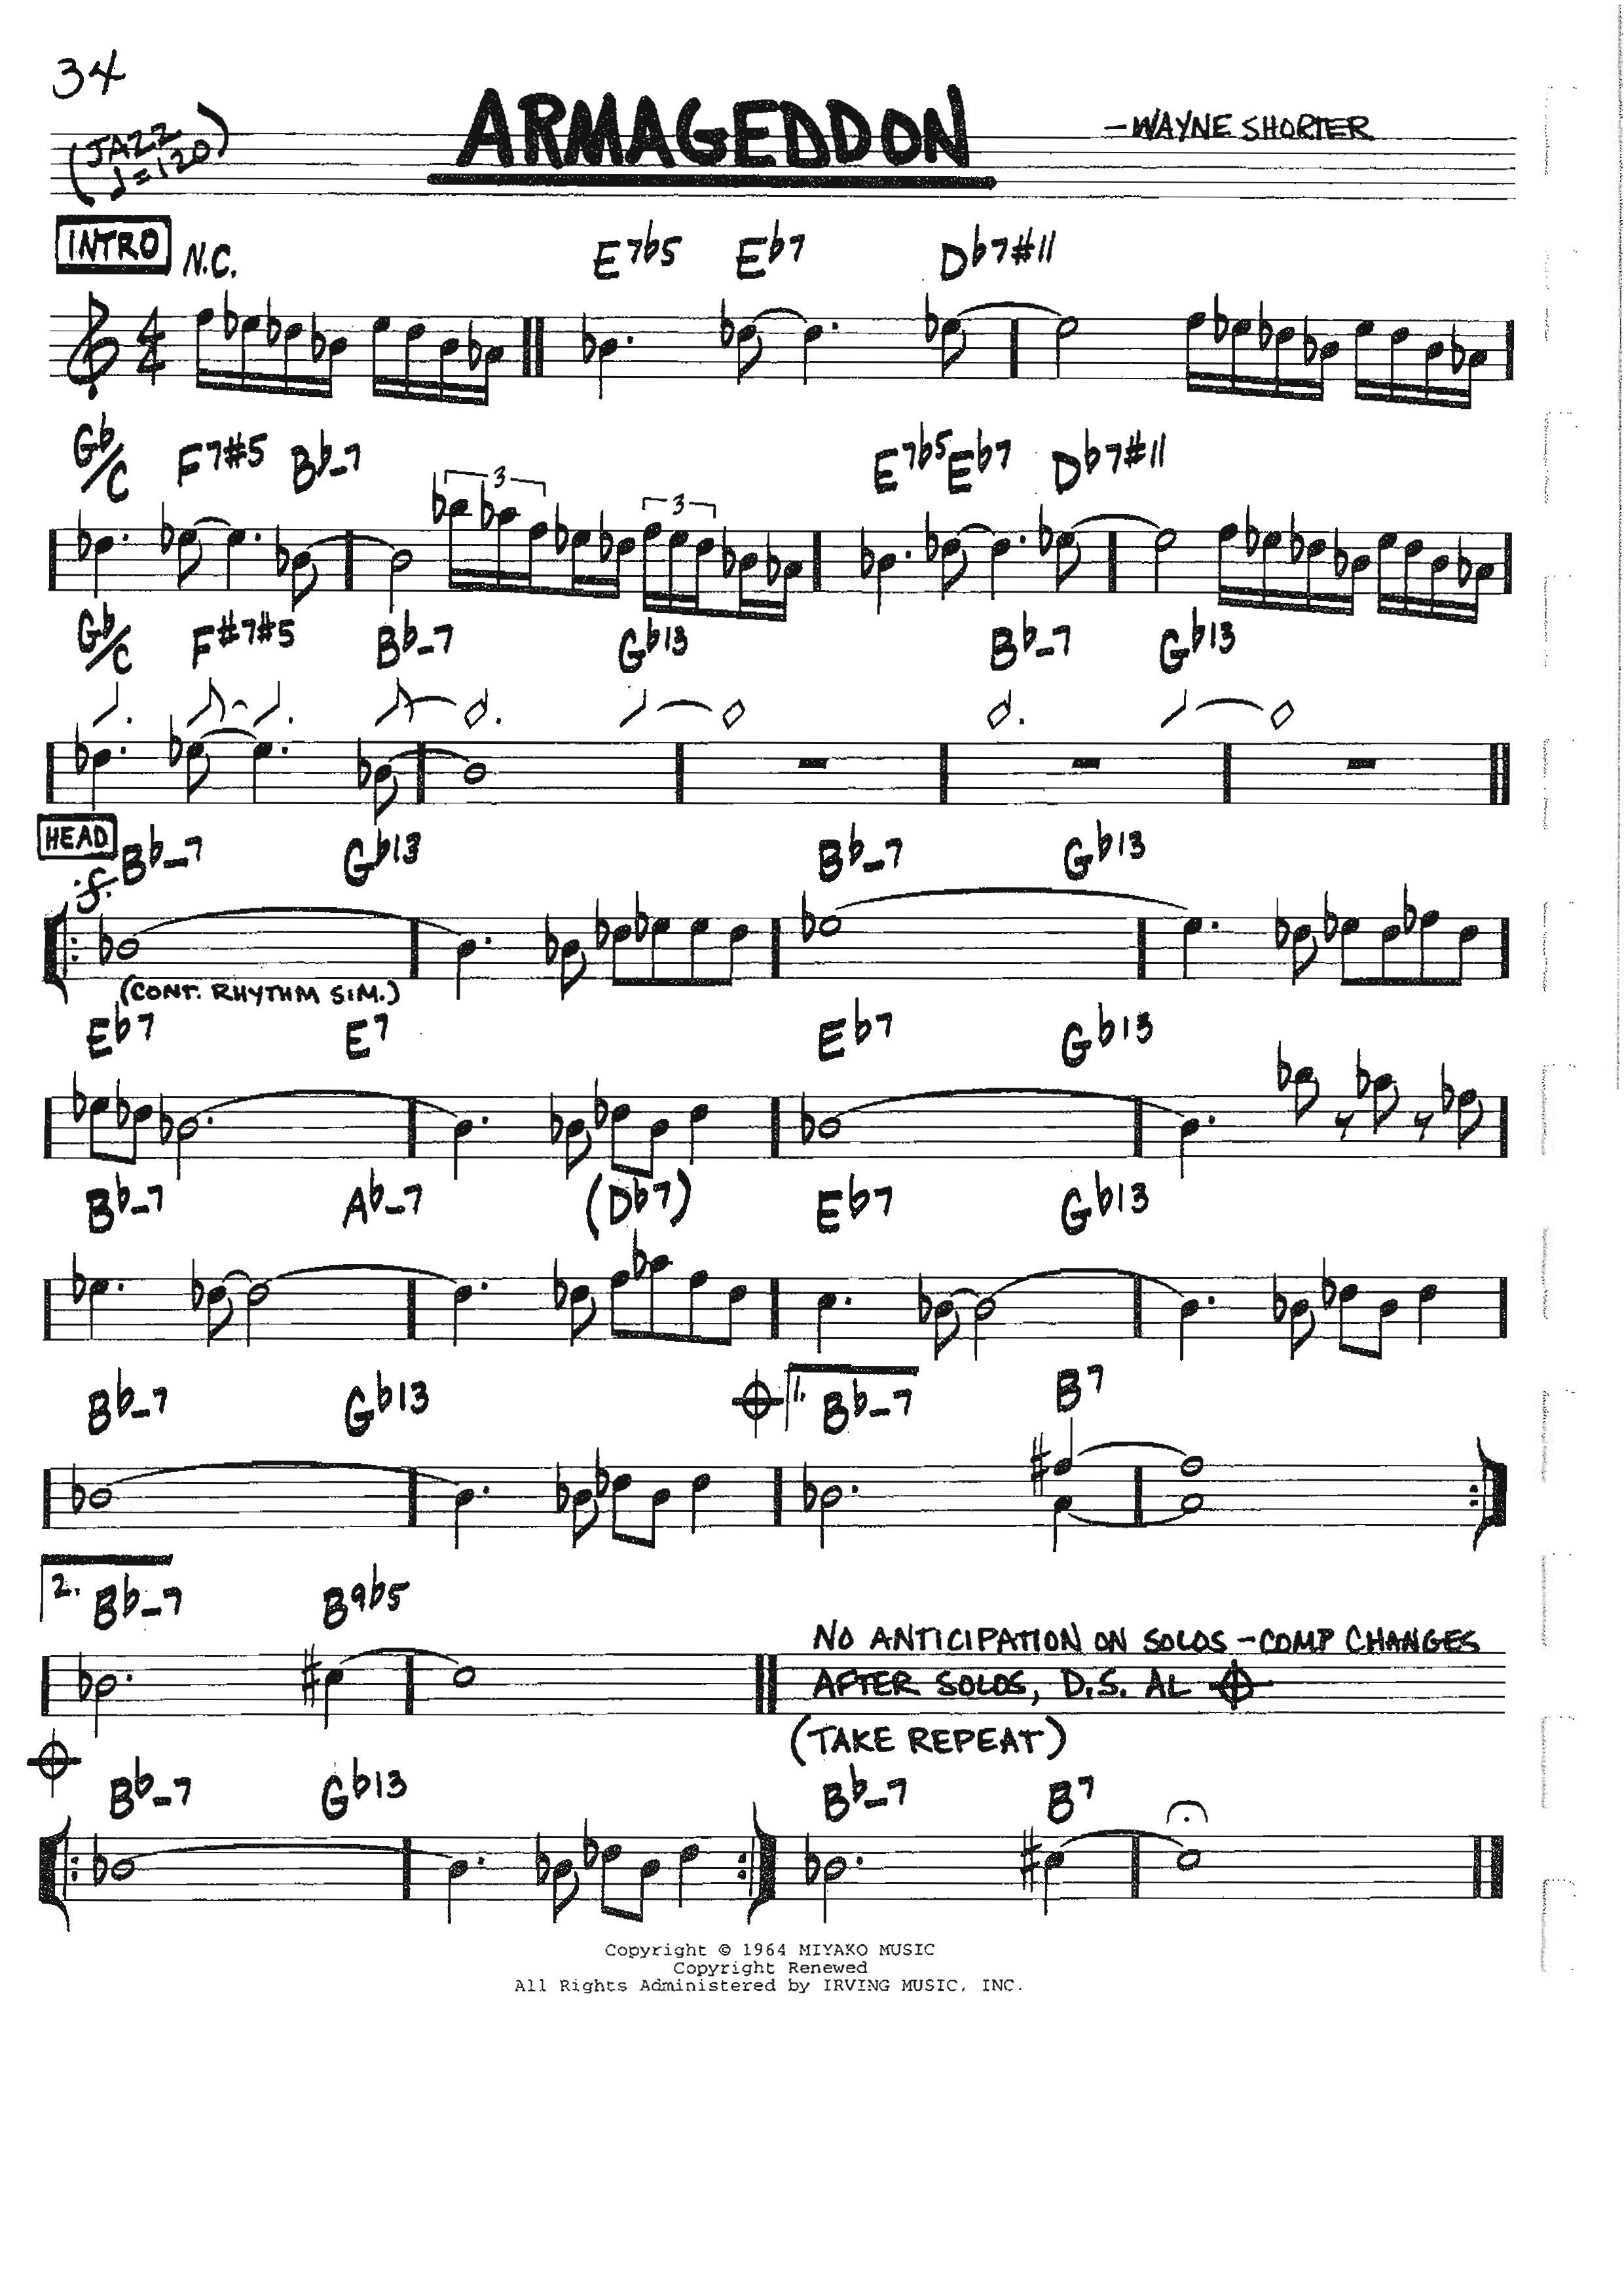 34
(JAZZ ♩=120)
ARMAGEDDON
–WAYNE SHORTER
INTRO N.C. E7b5 Eb7 Db7#11
4
4
Gb/C F7#5 Bb-7 3 3 E7b5 Eb7 Db7#11
Gb/C F#7#5 Bb-7 Gb13 Bb-7 Gb13
HEAD Bb-7 Gb13 Bb-7 Gb13
(CONT. RHYTHM SIM.)
Eb7 E7 Eb7 Gb13
Bb-7 Ab-7 (Db7) Eb7 Gb13
Bb-7 Gb13 1. Bb-7 B7
2. Bb-7 B9b5
NO ANTICIPATION ON SOLOS –COMP CHANGES
AFTER SOLOS, D.S. AL
(TAKE REPEAT)
Bb-7 Gb13 Bb-7 B7
Copyright © 1964 MIYAKO MUSIC
Copyright Renewed
All Rights Administered by IRVING MUSIC, INC.